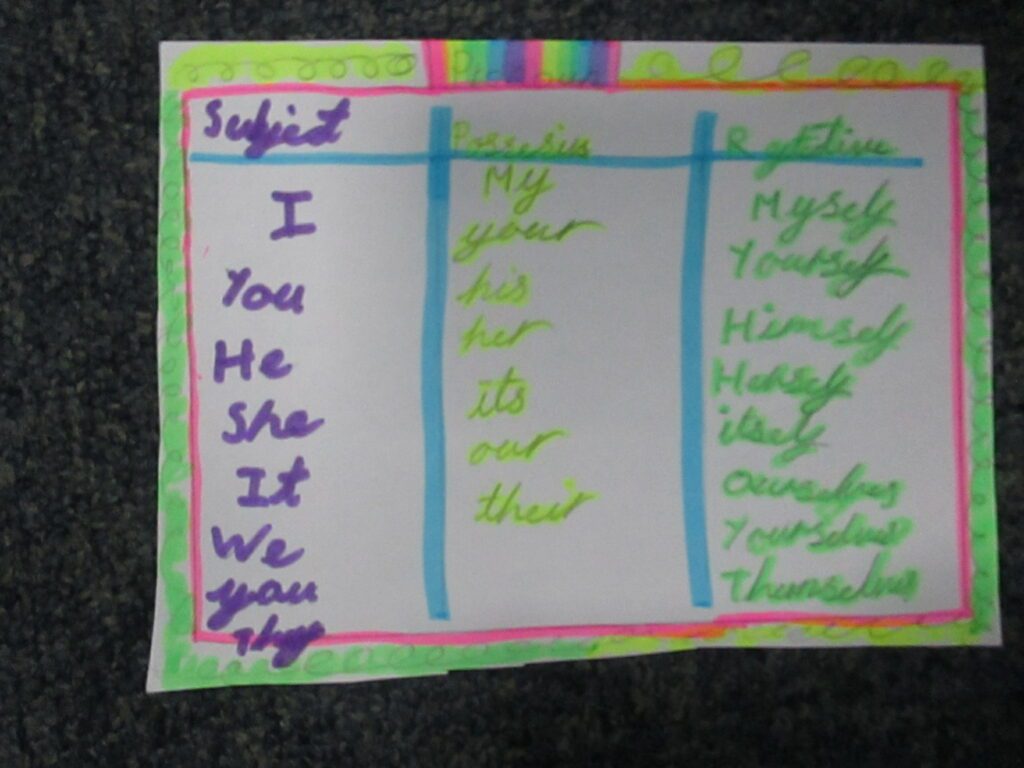 Subject
I
You
He
She
It
We
you
They
Possesive
My
your
his
her
its
our
their
Myself
Yourself
Himself
Herself
itself
ourselves
Yourselves
Themselves